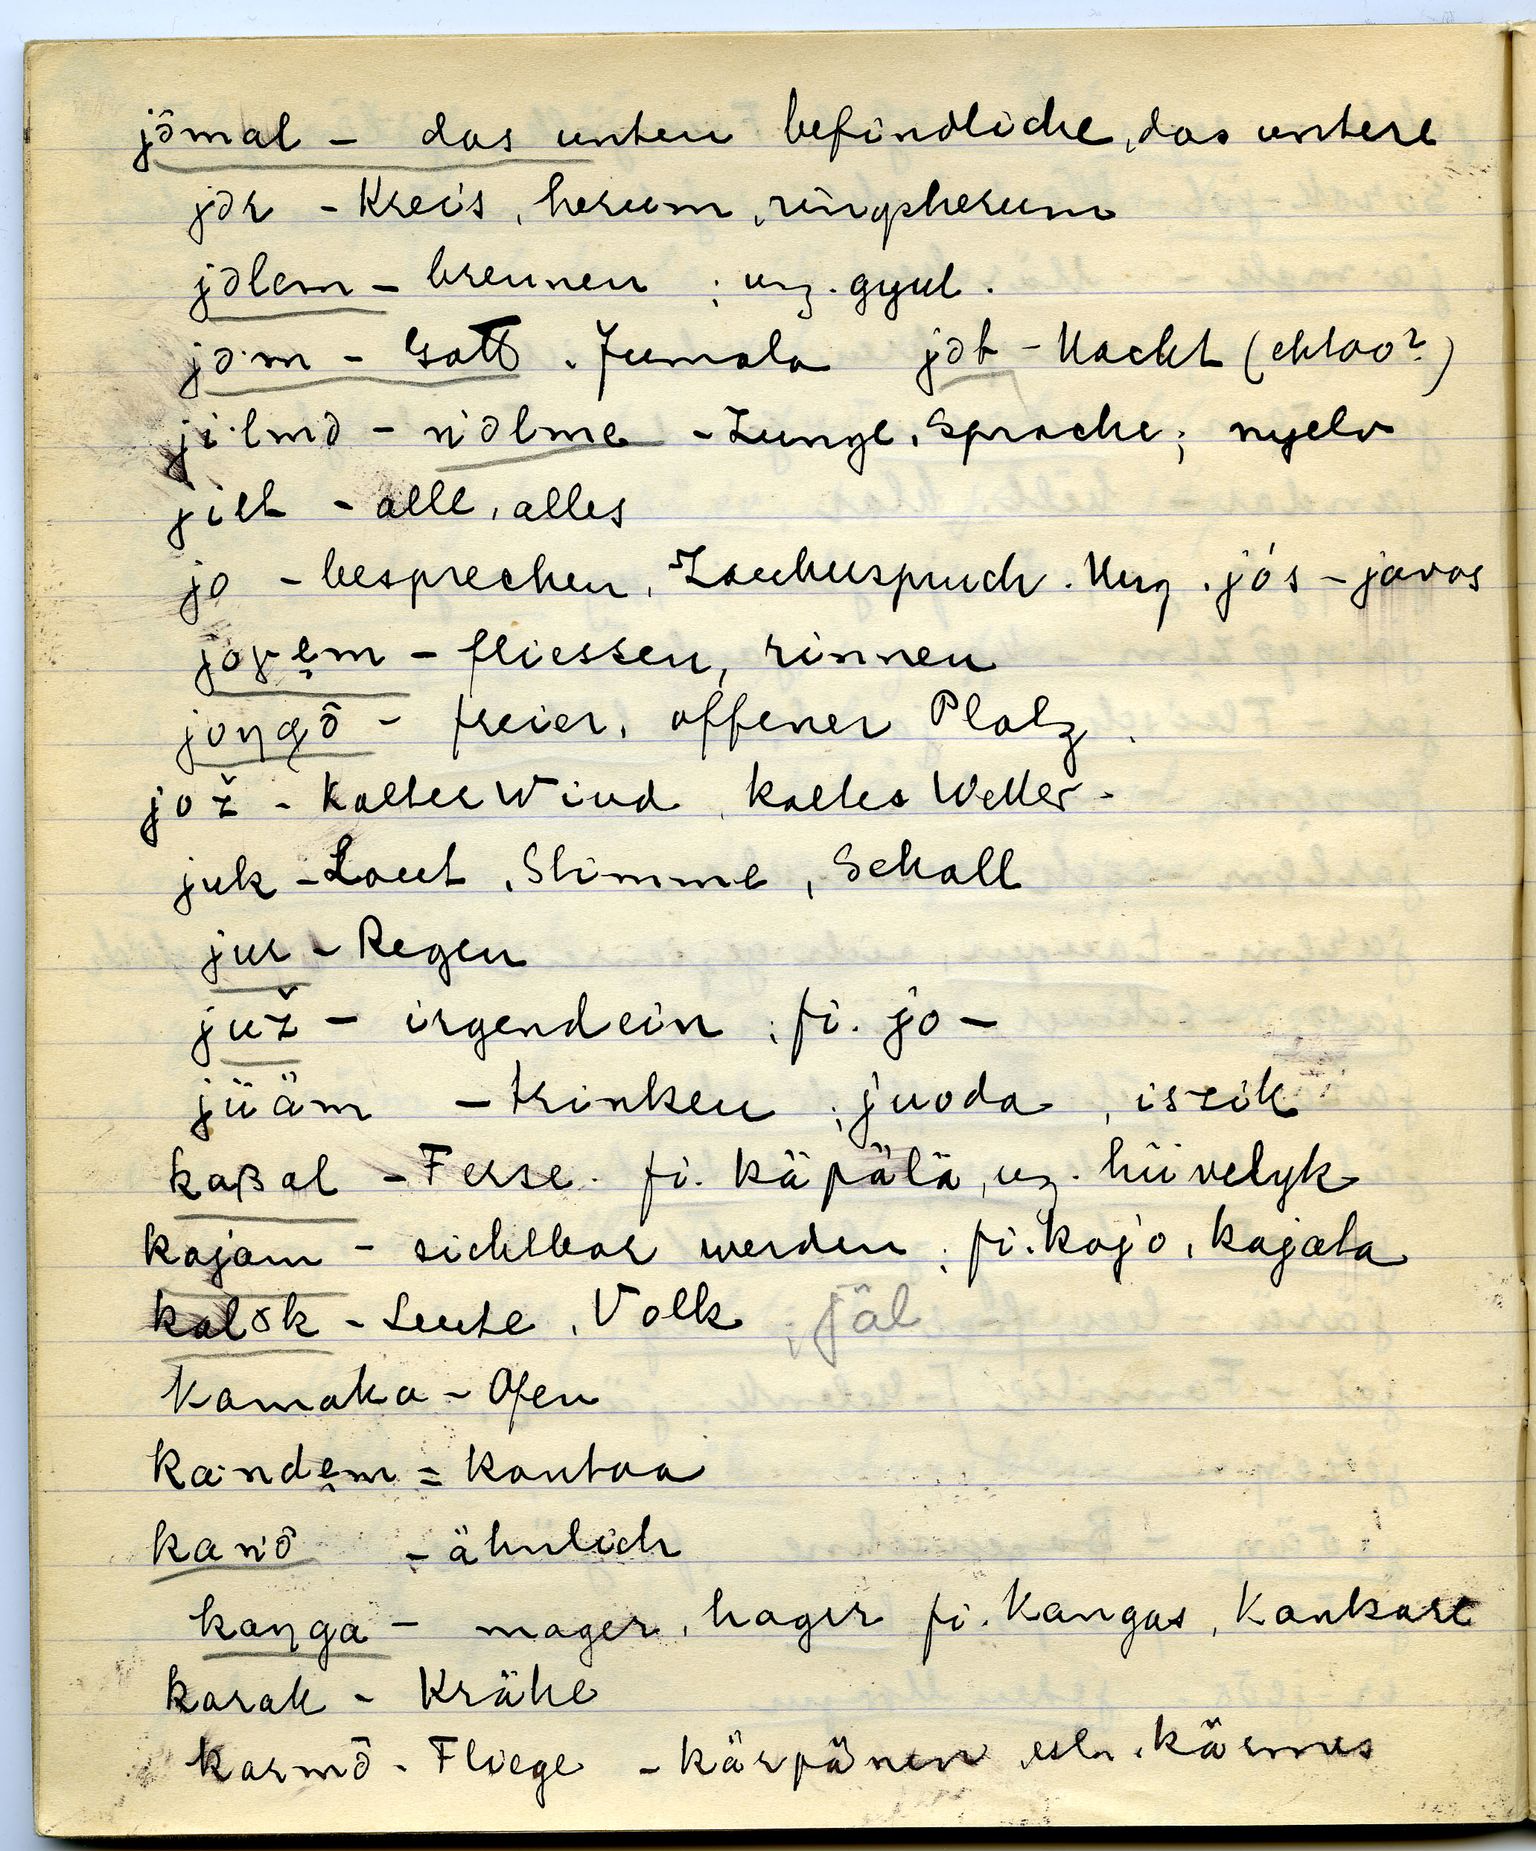 jə̑mal – das unten befindliche, das untere
jər – Kreis, herum, ringsherum
jəlem – brennen ; ung. gyul.
jə·m – Gott . Jumala jət – Nacht (ehtoo?)
ji·lmə – ńəlme – Zunge, Sprache ; nyelv
jilt – alle, alles
jo – besprechen, Zauberspruch. Ung. jós – javas
joγe̮m – fliessen, rinnen
joŋgə̑ – freier, offener Platz.
jož – kalter Wind, kaltes Wetter –
juk – Laut, Stimme, Schall
jur – Regen
juž – irgendein ; fi. jo –
jüäm – trinken ; juoda , iszik
kaβal – Ferse. fi. käpälä, ug. hüvelyk
kajam – sichtbar werden ; fi. kajo, kajala
kalək – Leute, Volk ; jäl
kamaka – Ofen
ka·nde̮m = kantaa
kańə̑ – ähnlich
kaŋga – mager, hager fi. Kangas, Kankare
karak – Krähe
karmə̑ – Fliege – kärpänen est. kärmes